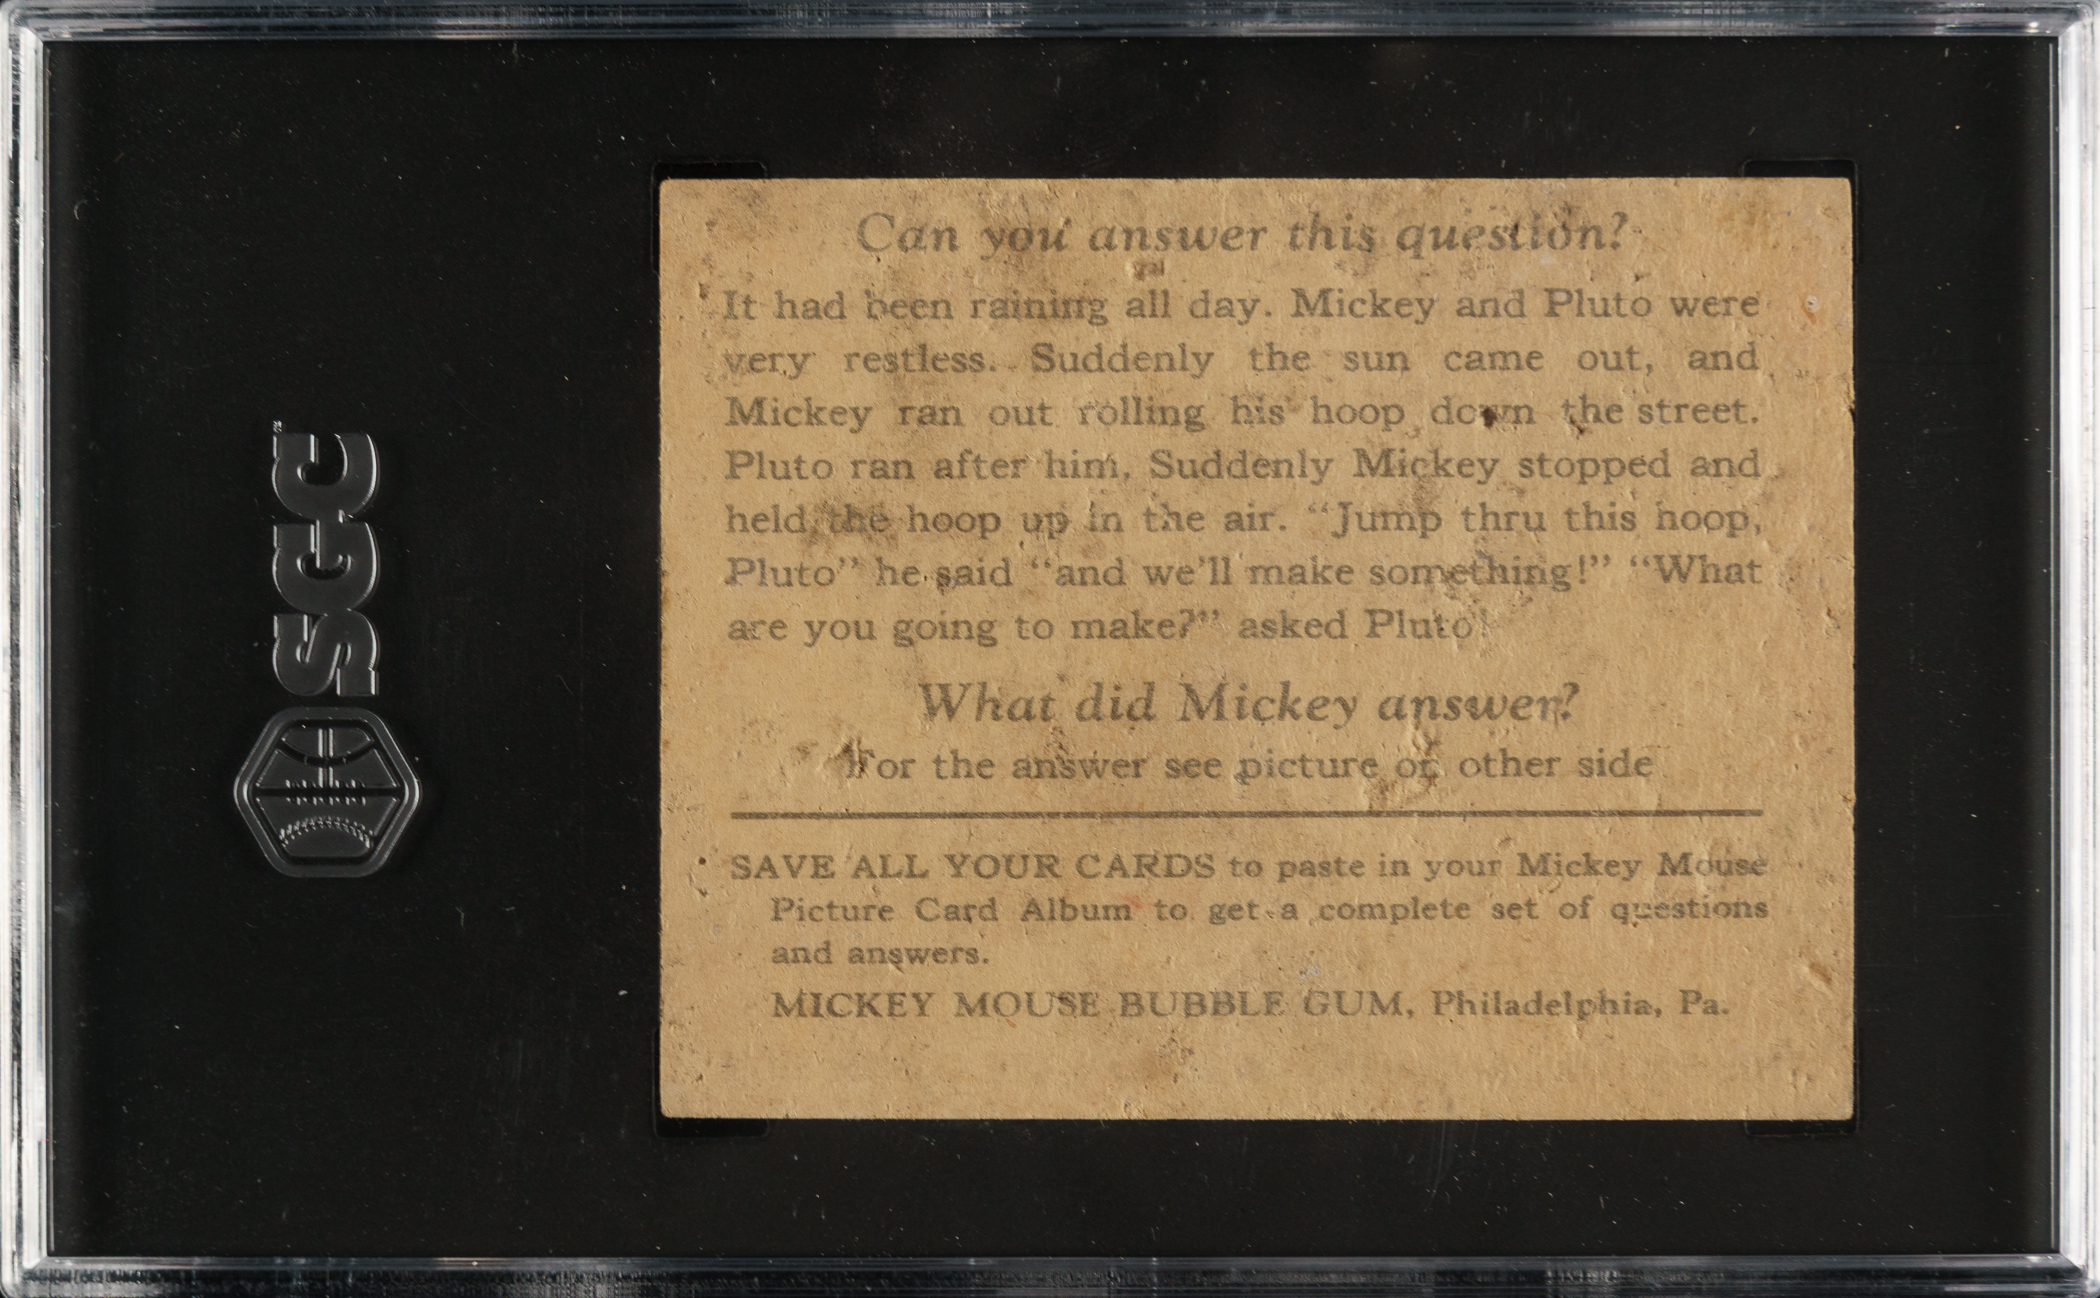 SGC
Can you answer this question?
It had been raining all day. Mickey and Pluto were
very restless. Suddenly the sun came out, and
Mickey ran out rolling his hoop down the street.
Pluto ran after him. Suddenly Mickey stopped and
held the hoop up in the air. “Jump thru this hoop,
Pluto” he said “and we’ll make something!” “What
are you going to make?” asked Pluto.
What did Mickey answer?
For the answer see picture on other side
SAVE ALL YOUR CARDS to paste in your Mickey Mouse
Picture Card Album to get a complete set of questions
and answers.
MICKEY MOUSE BUBBLE GUM, Philadelphia, Pa.